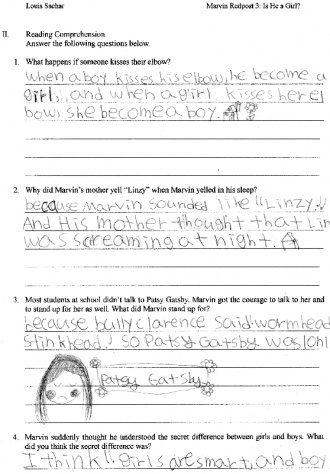 Louis Sachar Marvin Redpost 3: Is He a Girl?
II. Reading Comprehension
Answer the following questions below.
1. What happens if someone kisses their elbow?
when a boy kisses his elbow, he become a
girl, and when a girl kisses her el
bow, she become a boy.
2. Why did Marvin's mother yell "Linzy" when Marvin yelled in his sleep?
because Marvin sounded like "Linzy"
And His mother thought that Lin
was screaming at night.
3. Most students at school didn't talk to Patsy Gatsby. Marvin got the courage to talk to her and
to stand up for her as well. What did Marvin stand up for?
because bully clarence said wormhead
stinkhead! So Patsy Gatsby was
Patsy Gatsby
4. Marvin suddenly thought he understood the secret difference between girls and boys. What
did you think the secret difference was?
I think girls are smart, and boy